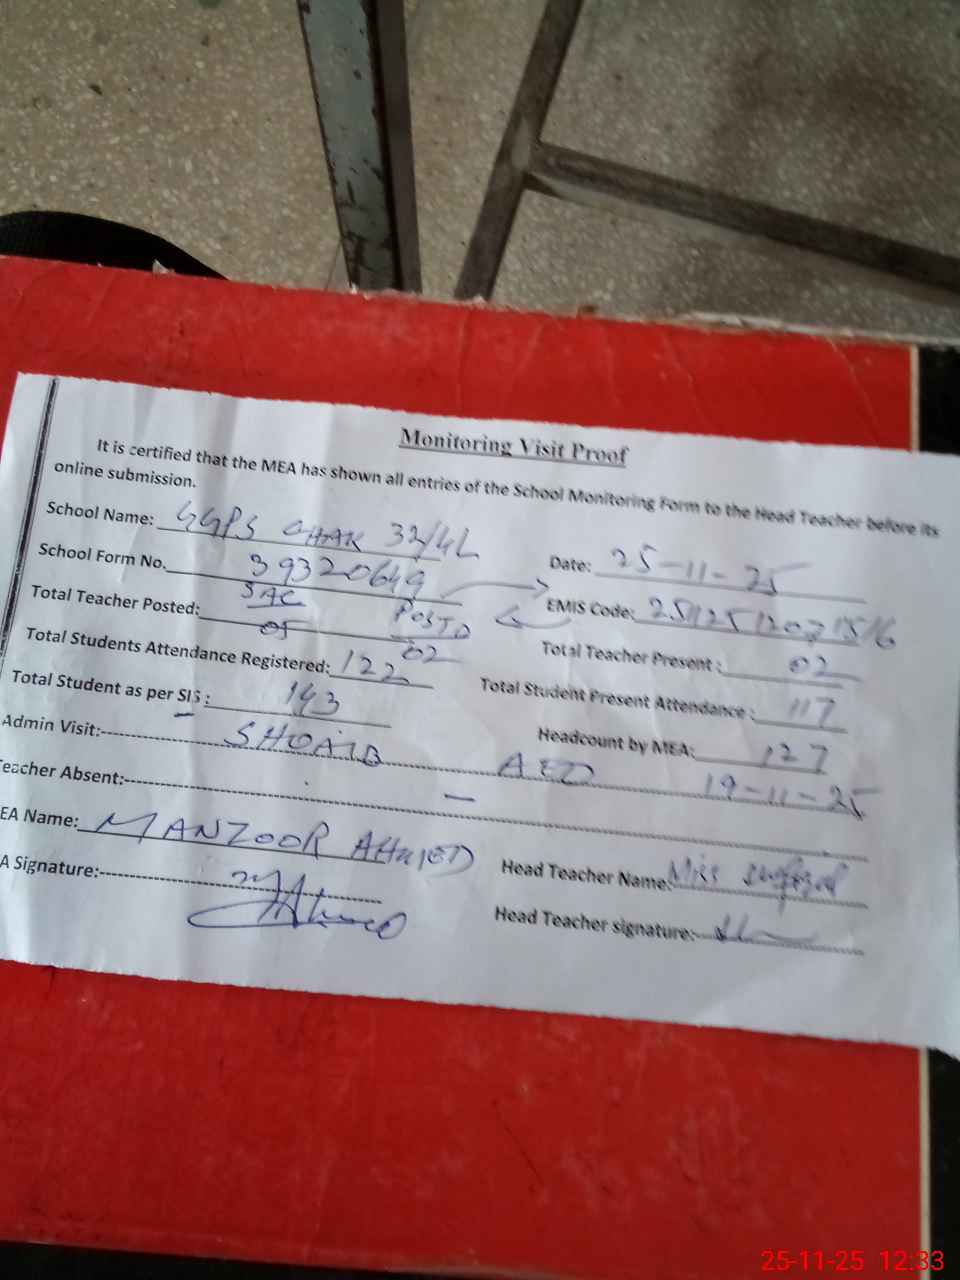 Monitoring Visit Proof
It is certified that the MEA has shown all entries of the School Monitoring Form to the Head Teacher before its
online submission.
School Name: GGPS CHAK 32/4L
Date: 25-11-25
School Form No. 39320649
EMIS Code:
Total Teacher Posted: SAC 05 POSTD 02
Total Teacher Present: 02
Total Students Attendance Registered: 122
Total Student Present Attendance: 117
Total Student as per SIS: 143
Headcount by MEA: 127
Admin Visit: SHOAIB AEO 19-11-25
eacher Absent: —
EA Name: MANZOOR AHMED
Head Teacher Name: Miss
A Signature:
Head Teacher signature:
25-11-25 12:33